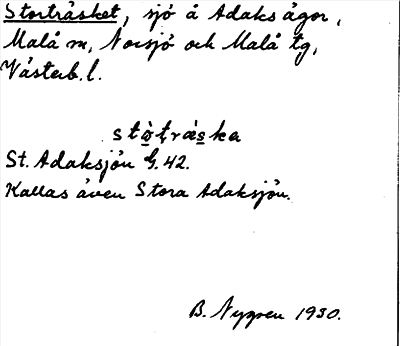 Storträsket, sjö å Adaks ägor,
Malå sn, Norsjö och Malå tg,
Västerb. l.
stò̱ṭrä̀s̱ka
St. Adaksjön G. 42.
Kallas även Stora Adaksjön.
B. Nygren 1930.